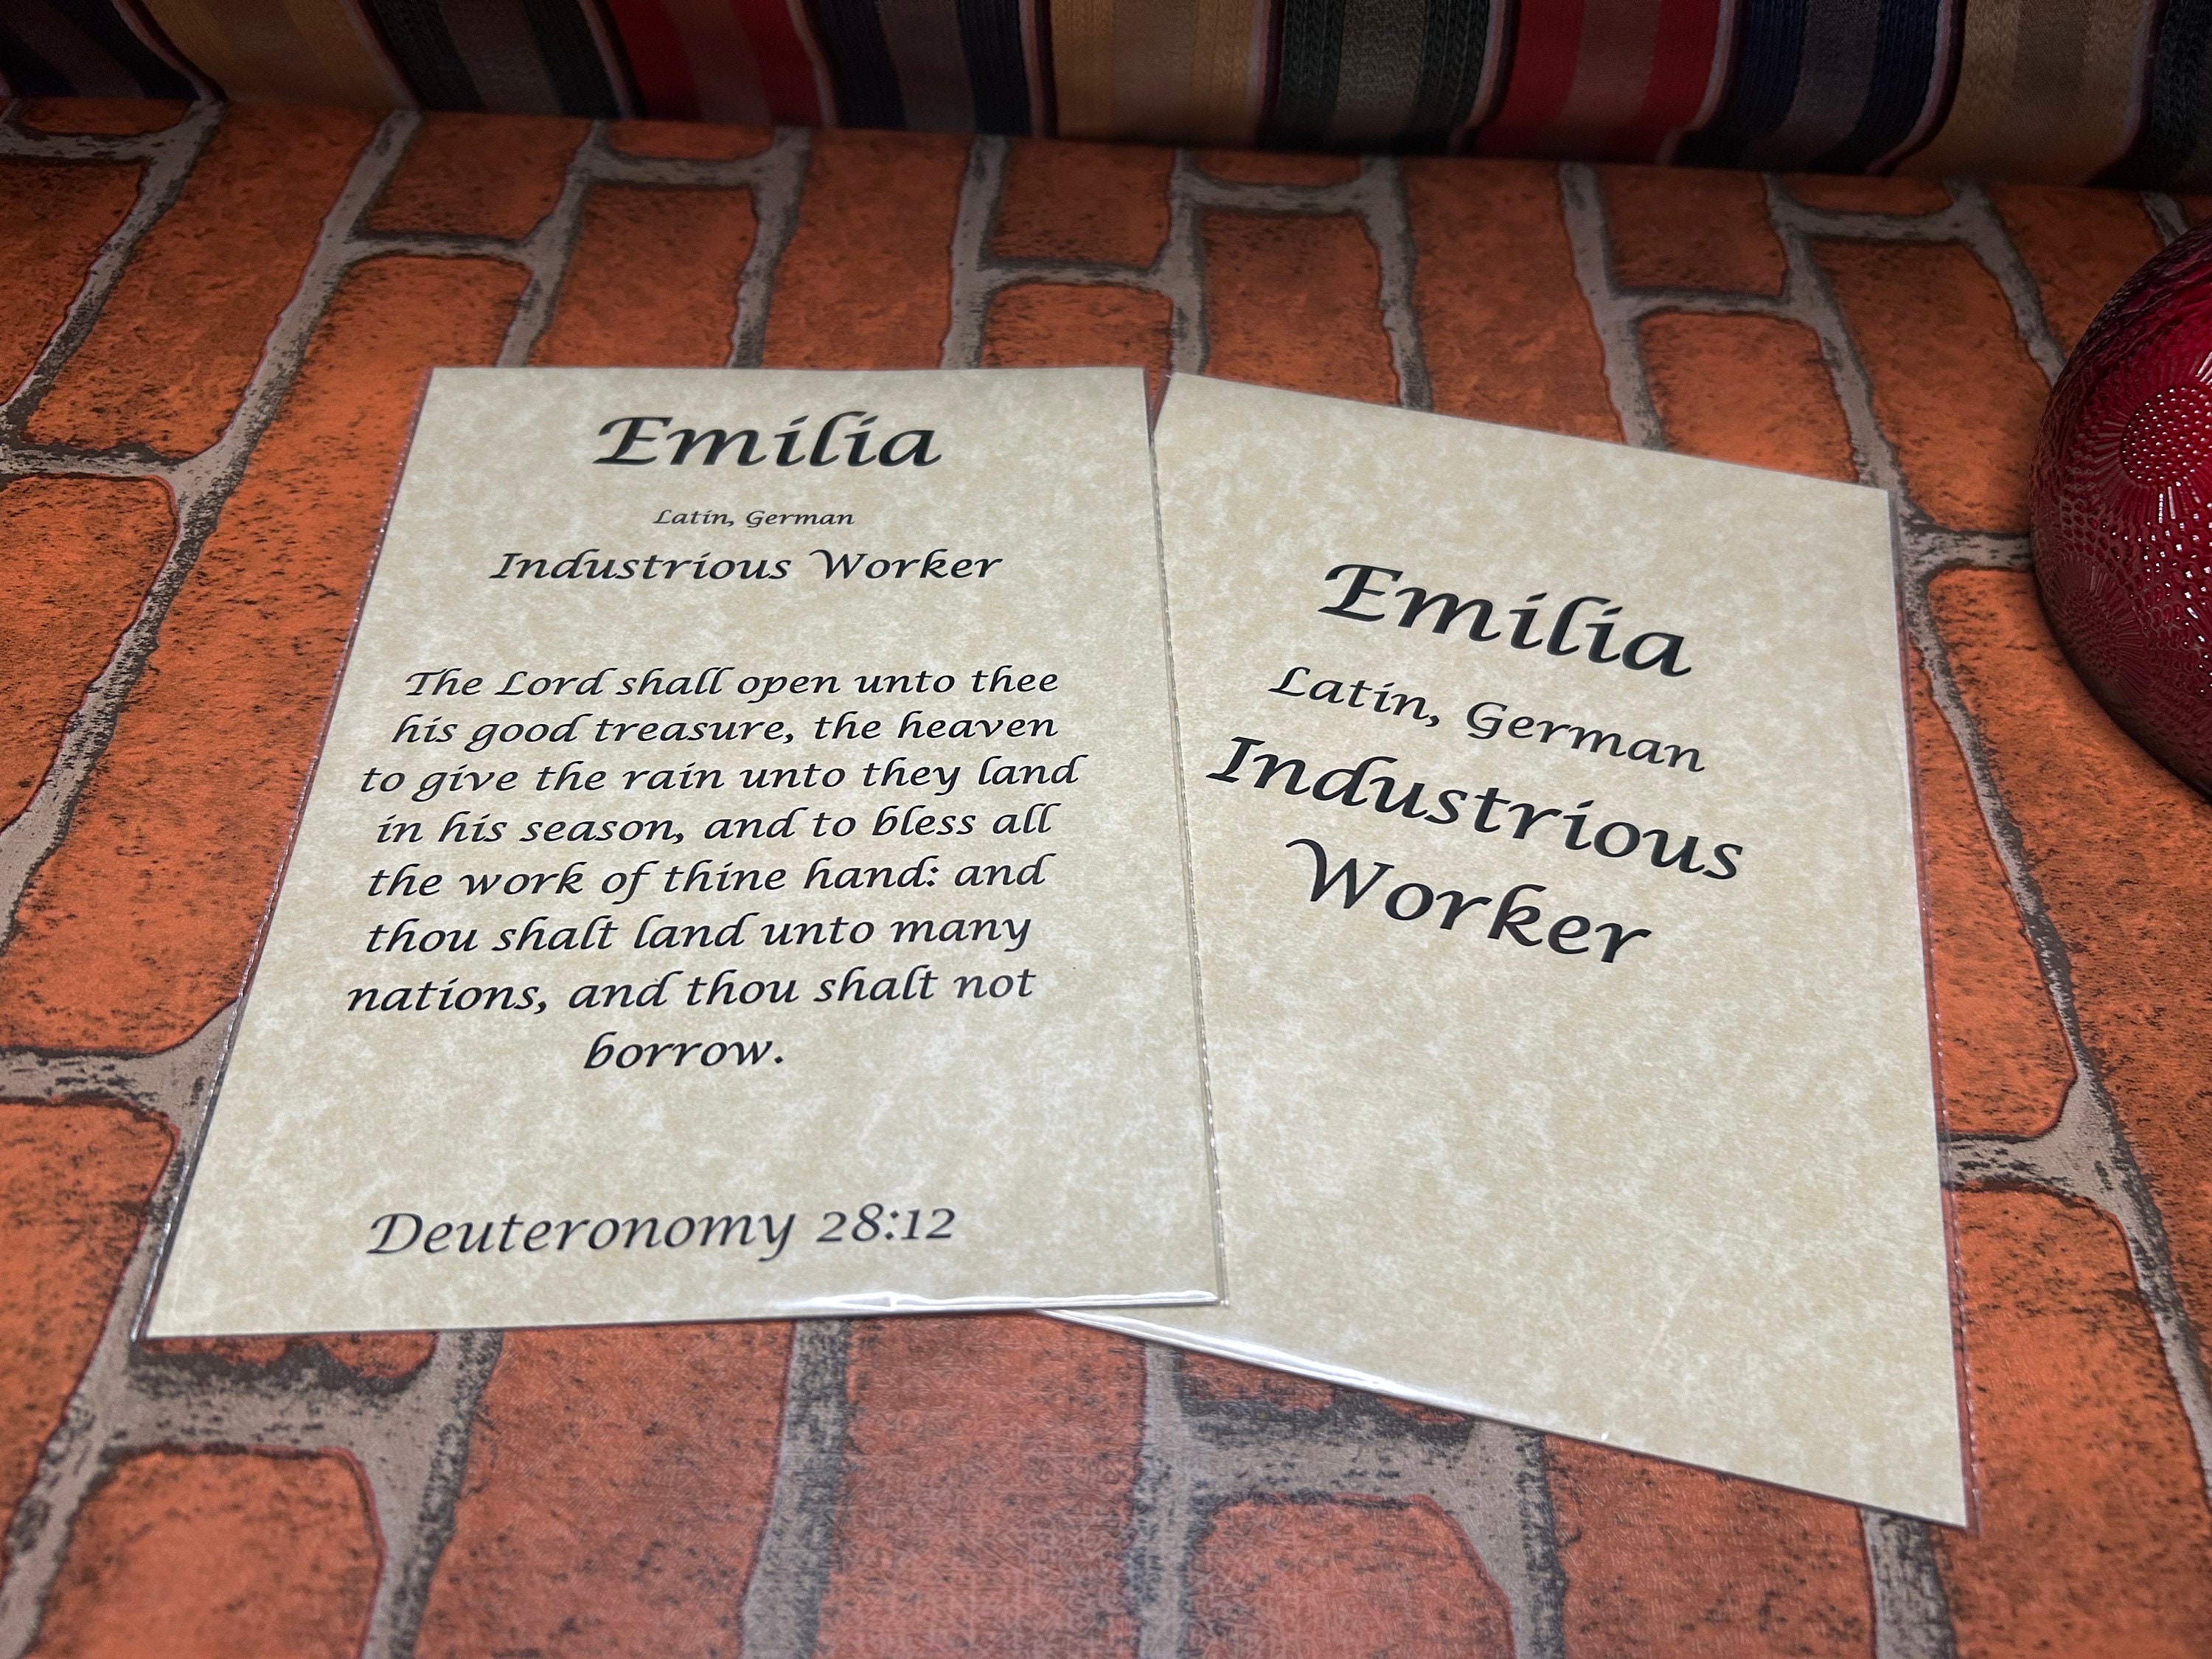 Emilia
Latin, German
Industrious Worker
The Lord shall open unto thee
his good treasure, the heaven
to give the rain unto they land
in his season, and to bless all
the work of thine hand: and
thou shalt land unto many
nations, and thou shalt not
borrow.
Deuteronomy 28:12
Emilia
Latin, German
Industrious
Worker